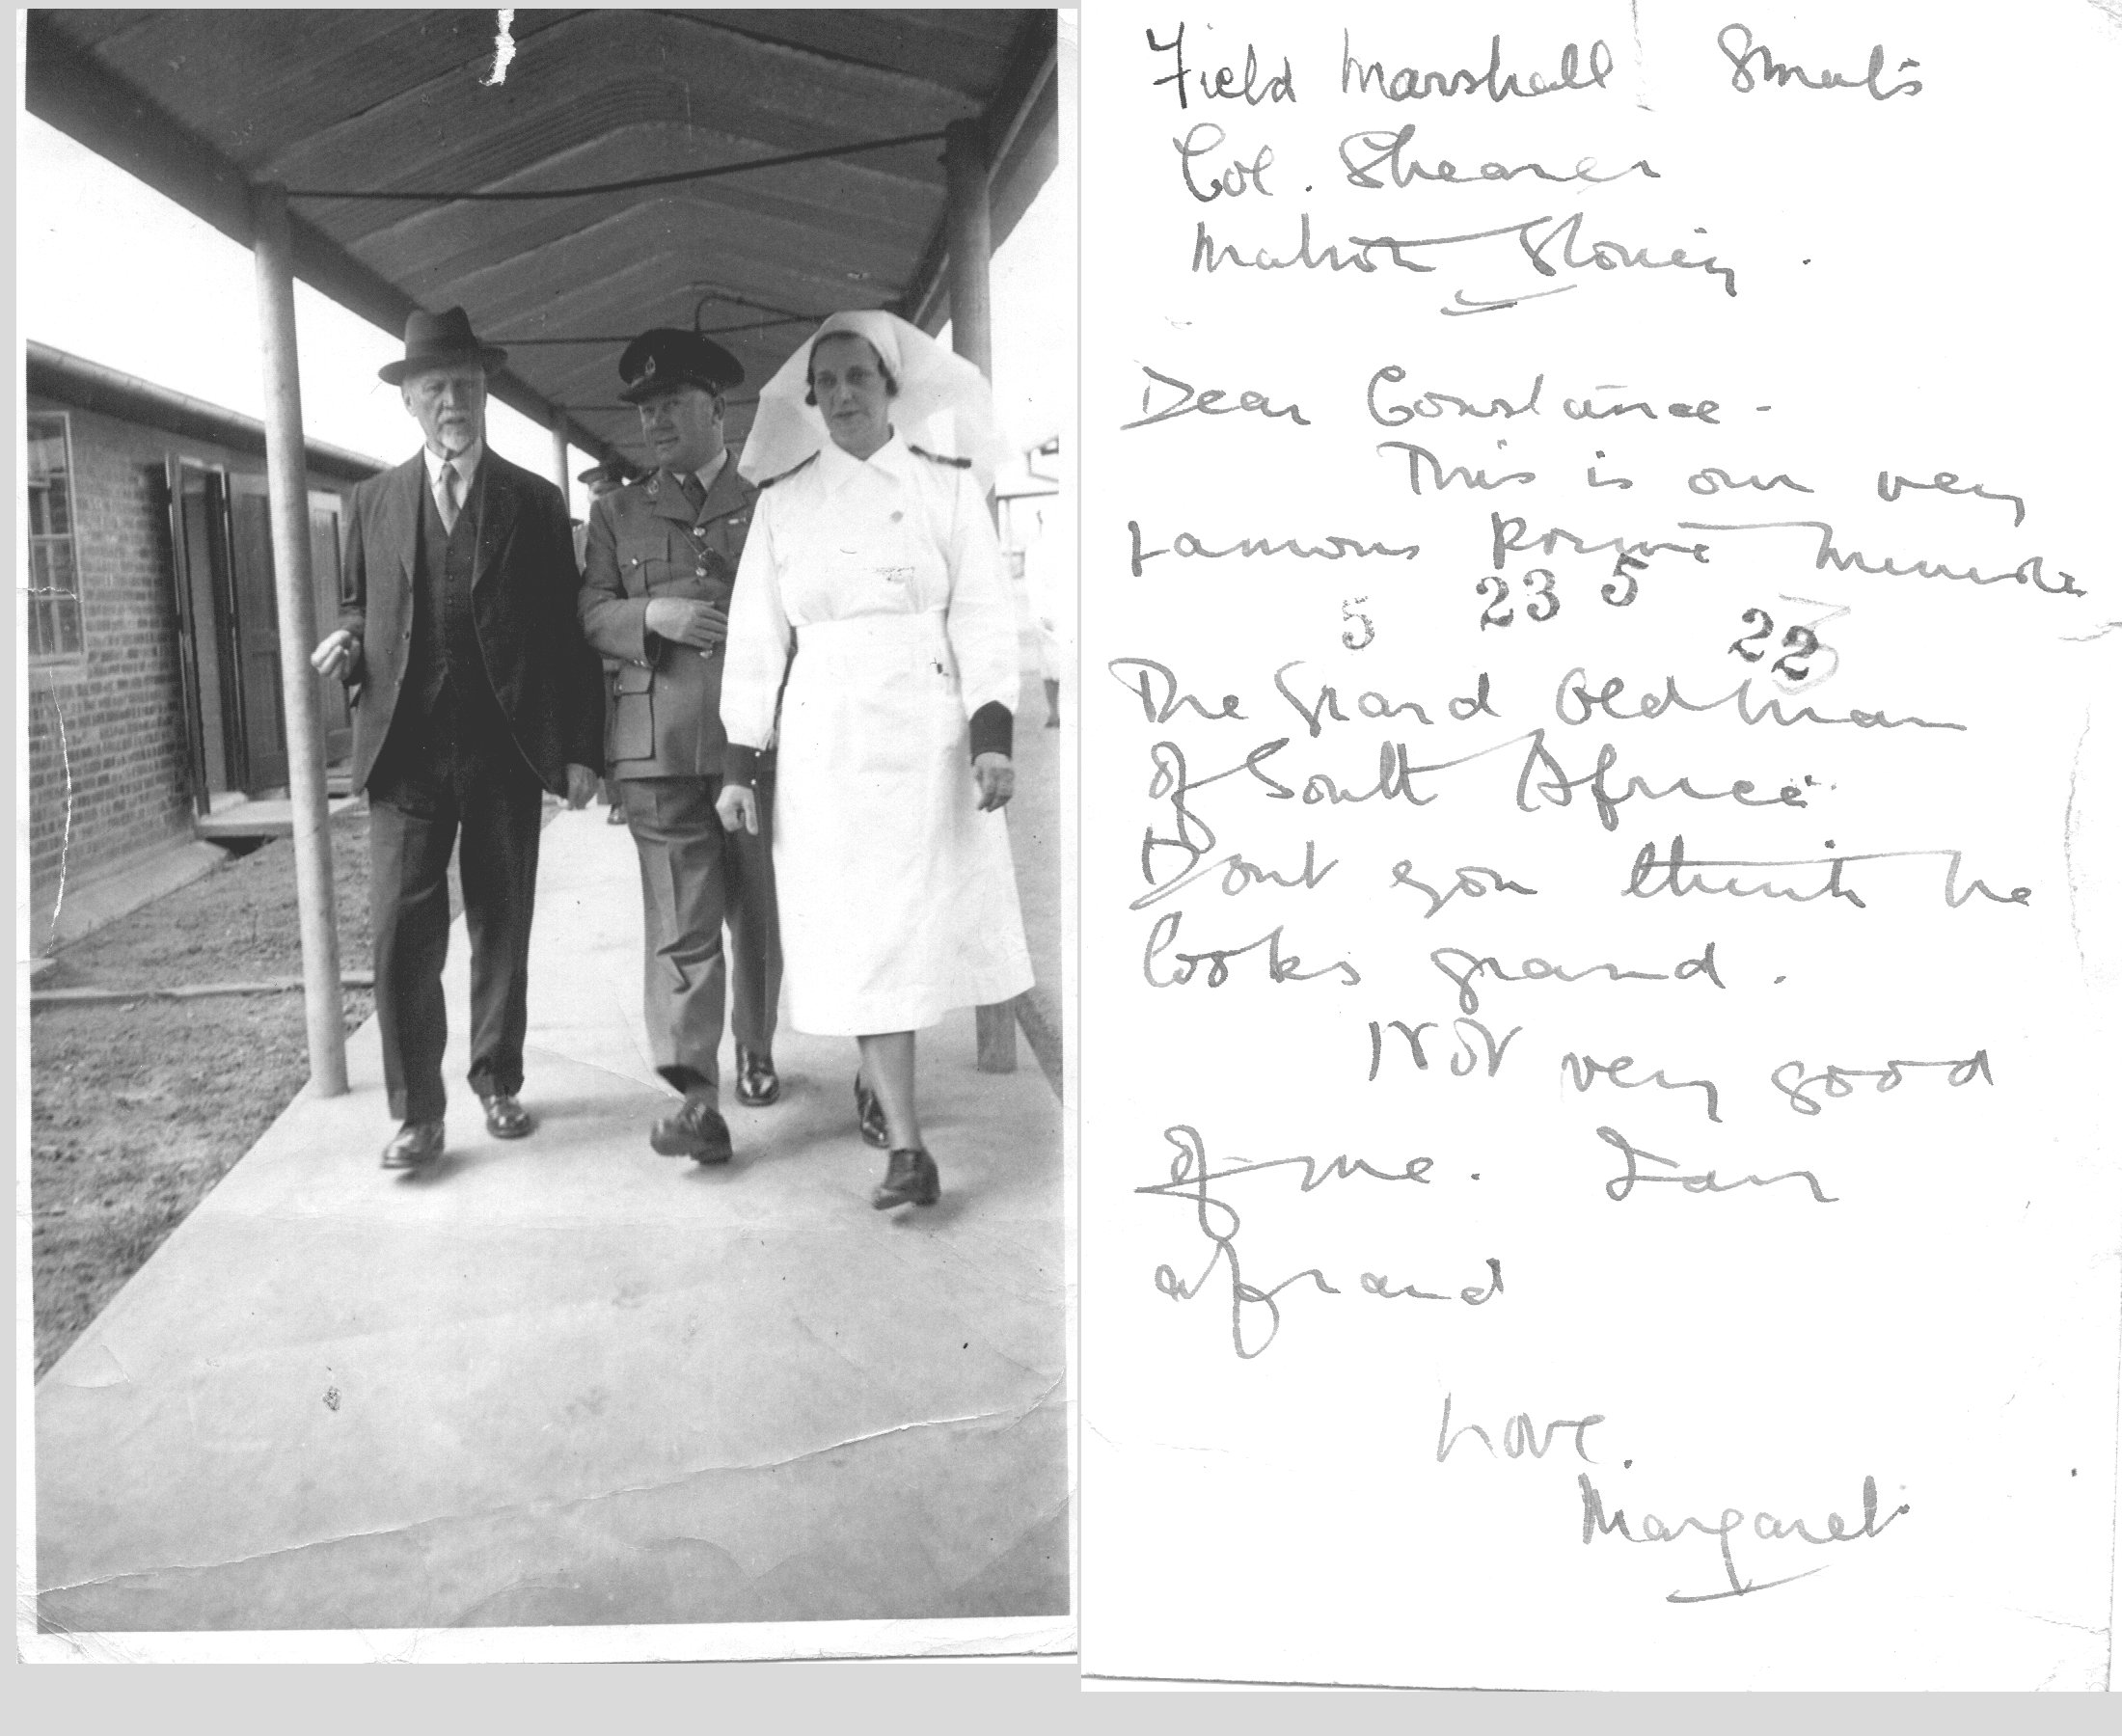 Field Marshall Smuts
Col. Shearer
Matron Stoney.
Dear Constance -
This is our very
famous Prime Minister
5 23 5
22
The Grand Old Man
of South Africa
Dont you think he
looks grand.
Not very good
of me. I am
afraid
Love.
Margaret